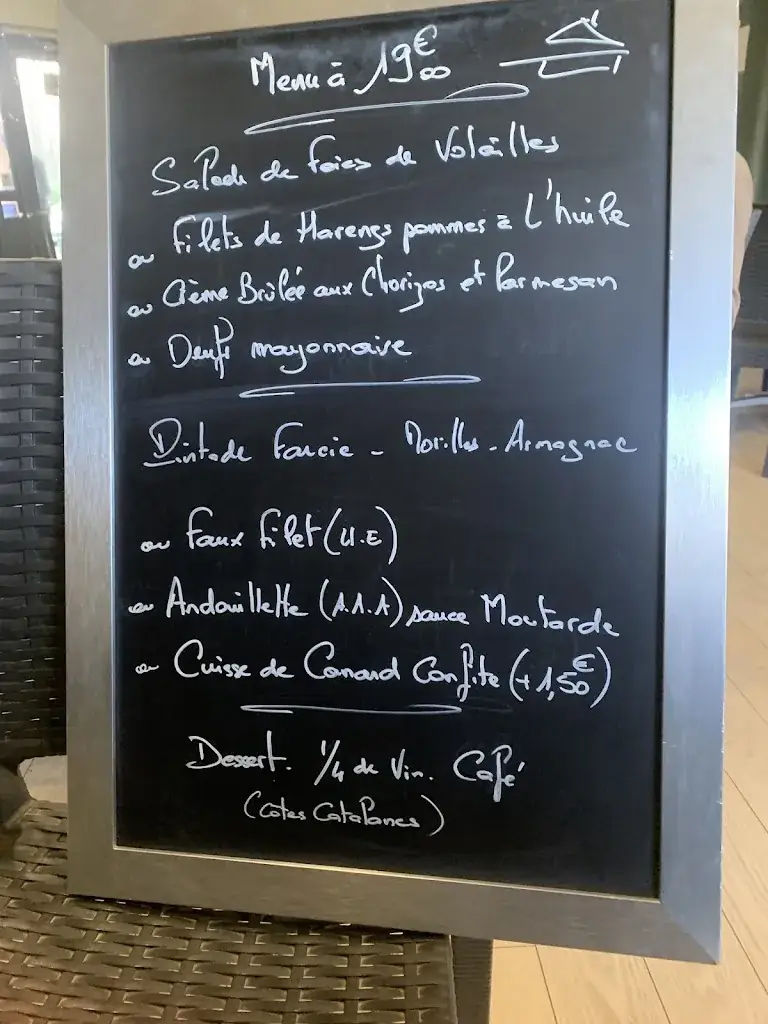 Menu à 19€00
Salade de foies de Volailles
ou Filets de Harengs pommes à L'huile
ou Crème Brûlée aux Chorizos et Parmesan
ou Oeufs mayonnaise
Pintade Farcie - Morilles - Armagnac
ou Faux Filet (U.E)
ou Andouillette (A.A.A) sauce Moutarde
ou Cuisse de Canard Confite (+1,50€)
Dessert. 1/4 de Vin. Café
(Côtes Catalanes)